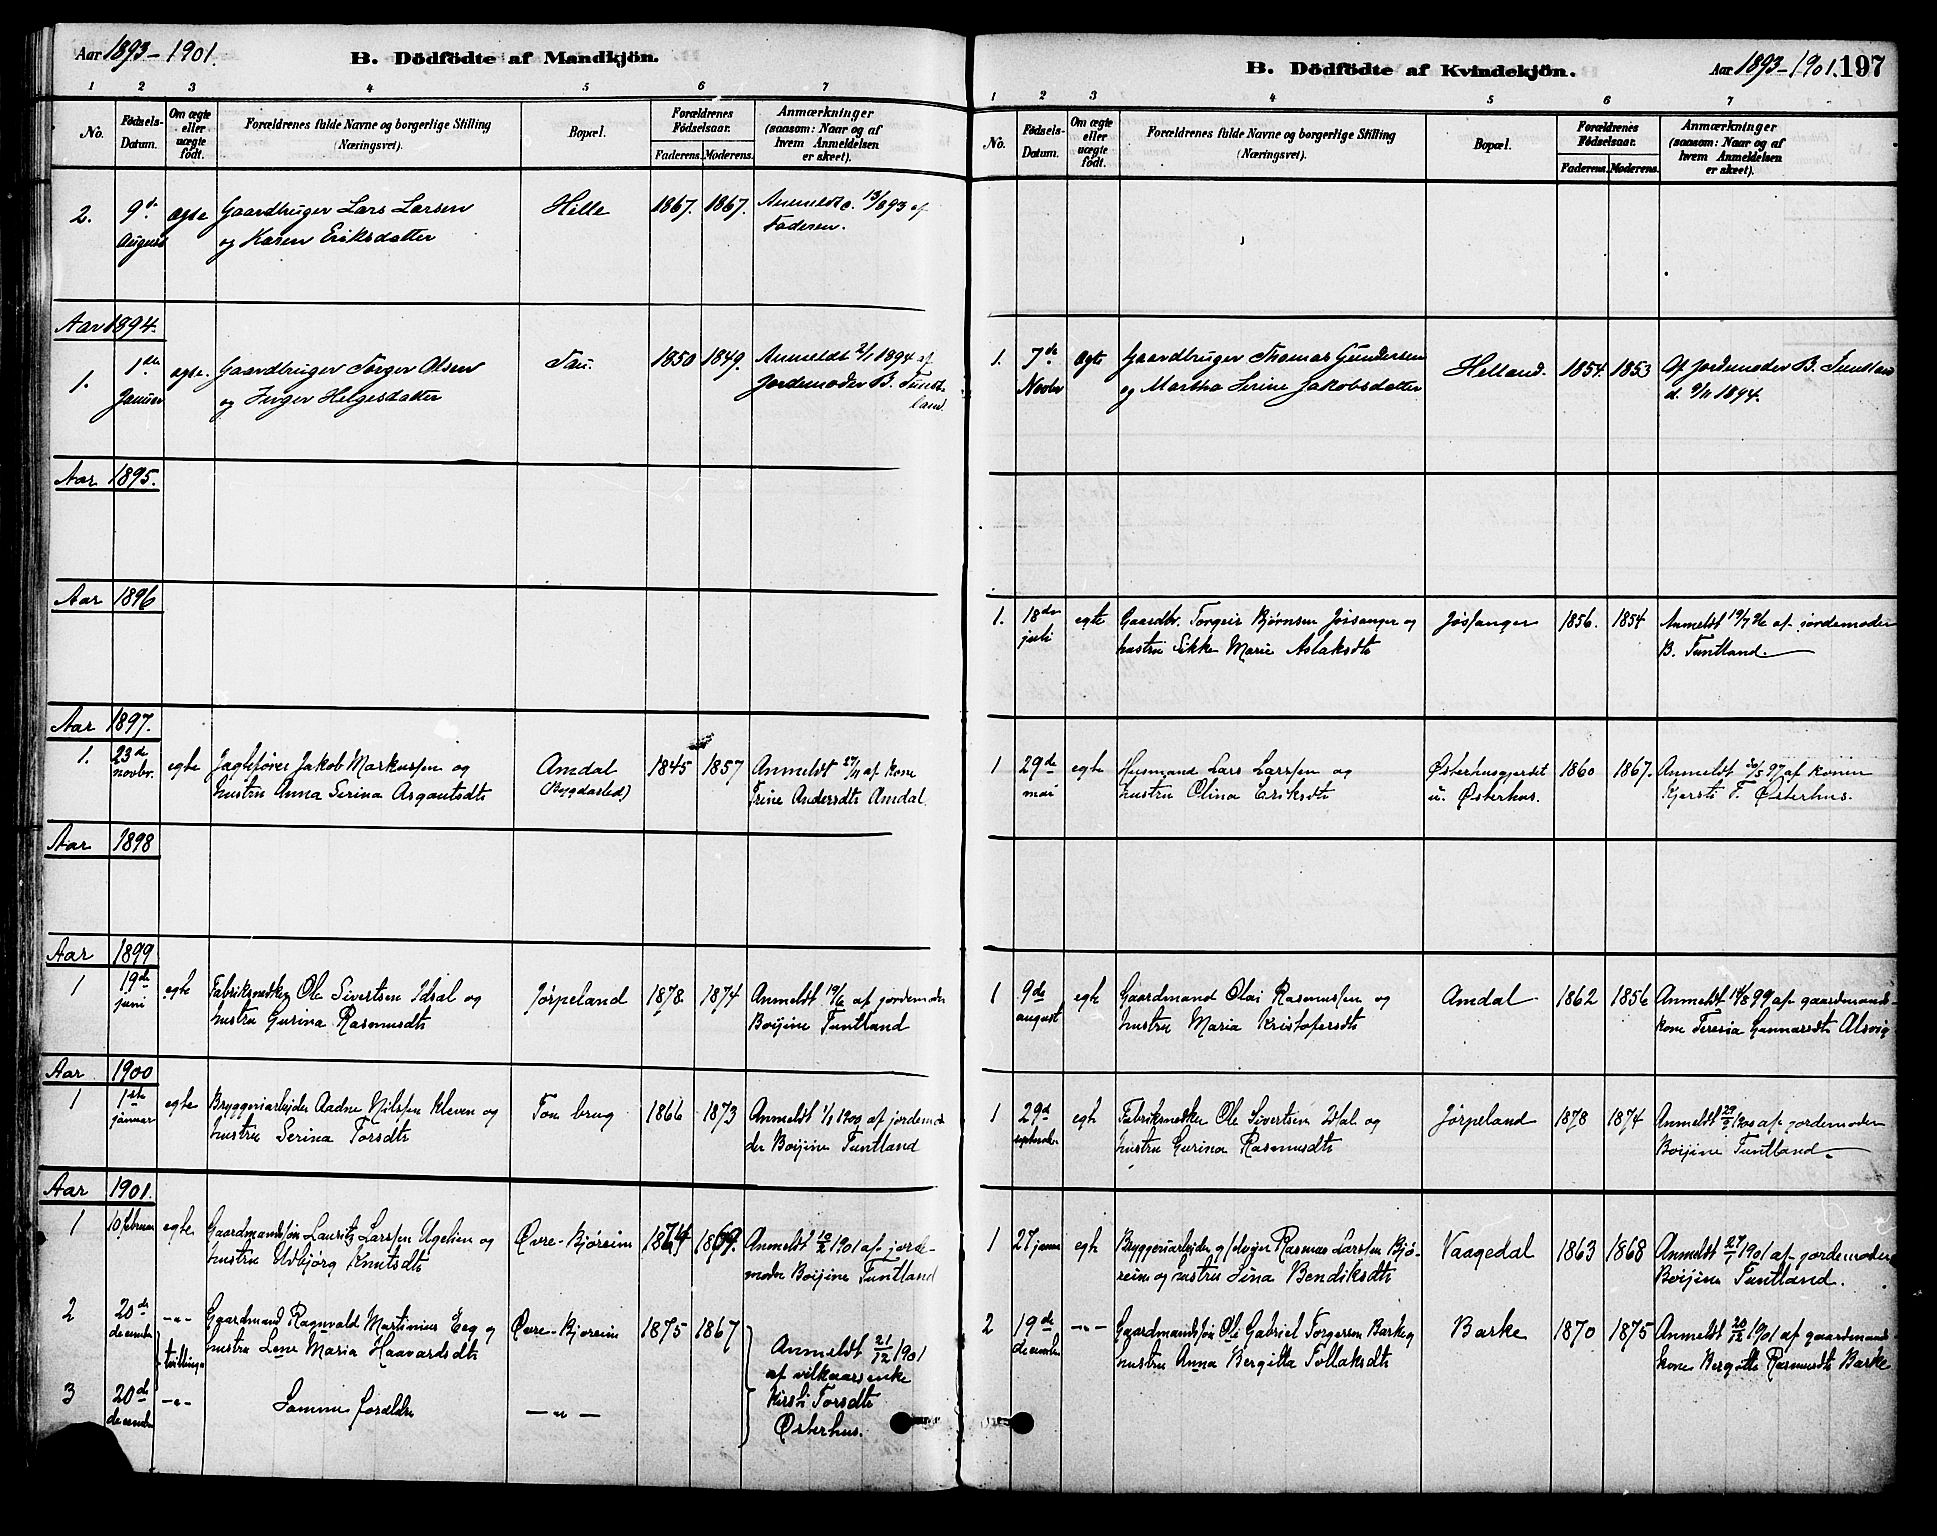 Aar 1893-1901.
B. Dödfödte af Mandkjön.
1 2 3 4 5 6 7
No.
Fødsels-Datum.
Om ægte eller uægte født.
Forældrenes fulde Navne og borgerlige Stilling
(Næringsvei).
Bopæl.
Forældrenes Fødselsaar.
Faderens. Moderens.
Anmærkninger
(saasom: Naar og af
hvem Anmeldelsen
er skeet).
2. 9de ægte Gaardbruger Lars Larsen Hille 1867. 1867. Anmeldt 13/8 93 af
August og Karen Eriksdatter Faderen.
Aar 1894.
1. 1ste ægte. Gaardbruger Torger Olsen Tau. 1850 1849. Anmeldt 2/1 1894 af
Januar og Inger Helgesdatter Jordemoder B. Tunt-
land.
Aar 1895.
Aar 1896
Aar 1897.
1. 23de egte Jagtefører Jakob Markussen og Amdal 1845 1857 Anmeldt 27/11 af kone
novbr. hustru Anna Serina Asgautsdtr (Bygdasted) Trine Andersdtr Amdal.
Aar 1898
Aar 1899
1 19de egte Ole Sivertsen Idsal og Jørpeland 1878. 1874 Anmeldt 19/6 af jordemoder
juni hustru Gurina Rasmusdtr Boijine Tuntland
Aar 1900
1 1ste egte Bryggeriarbeider Aadne Nilssen Kleven og Tou brug 1866 1873 Anmeldt 1/1 1900 af jordemo-
januar hustru Serina Torsdtr der Boijine Tuntland
Aar 1901.
1 10 februar egte Gaardmandssøn Lauritz Larssen Ugelien og Øvre-Bjøreim 1874 1869. Anmeldt 10/2 1901 af jorde-
hustru Udbjørg Knutsdtr moder Boijine Tuntland
2 20de -"- Gaardmand Ragnvald Martinius Eeg og Øvre-Bjøreim 1875 1867 Anmeldt 21/12 1901
december tvillinge hustru Lene Maria Haavardsdtr af vilkaarsenke
3 20de -"- Samme forældre -"- Kirsti Torsdtr
december Østerhus.
Aar 1893-1901. 197
B. Dödfödte af Kvindekjön.
1 2 3 4 5 6 7
No.
Fødsels-Datum.
Om ægte eller uægte født.
Forældrenes fulde Navne og borgerlige Stilling
(Næringsvei).
Bopæl.
Forældrenes Fødselsaar.
Faderens. Moderens.
Anmærkninger
(saasom: Naar og af
hvem Anmeldelsen
er skeet).
1. 7de ægte Gaardbruger Thomas Gundersen Helland. 1854. 1853 Af Jordemoder B. Tuntlan
Novbr og Martha Serine Jakobsdatter d. 9/11 1894.
1. 18de egte Gaardbr. Torgeir Bjørnsen Jøssanger og Jøssanger 1856. 1854 Anmeldt 19/7 96 af jordemoder
juli hustru Sikke Marie Aslaksdtr B. Tuntland.
1 29de egte Husmand Lars Larssen og Østerhusgjerdet 1860 1867. Anmeldt 30/5 97 af konen
mai hustru Olina Eriksdtr u. Østerhus. Kjersti T. Østerhus.
1 9de egte Gaardmand Olai Rasmussen og Amdal 1862 1856 Anmeldt 14/8 99 af gaardmands-
august hustru Maria Kristofersdtr kone Teresia Gunnarsdtr Alsvig
1 29d egte Ole Sivertsen Idsal og Jørpeland 1878 1874 Anmeldt 29/9 1900 af jordemoder
september hustru Gurina Rasmusdtr Boijine Tuntland
1 27 januar egte Bryggeriarbeider og Rasmus Larssen Bjø- Vaagedal 1863 1868 Anmeldt 27/1 1901 af jordemoder
reim og hustru Sina Bendiksdtr Boijine Tuntland.
2 19de -"- Gaardmandssøn Ole Gabriel Torgersen Barke og Barke 1870 1875 Anmeldt 20/12 1901 af gaardmands
december hustru Anna Bergitta Tollaksdtr kone Bergitte Rasmusdtr Barke